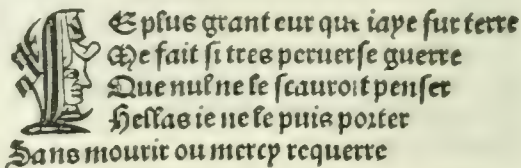 LE plus grant eur qui iaye ſur terre
Me fait ſi tres peruerſe guerre
Que nul ne le ſcauroit penſer
Hellas ie ne le puis porter
Sans mourir ou mercy requerre